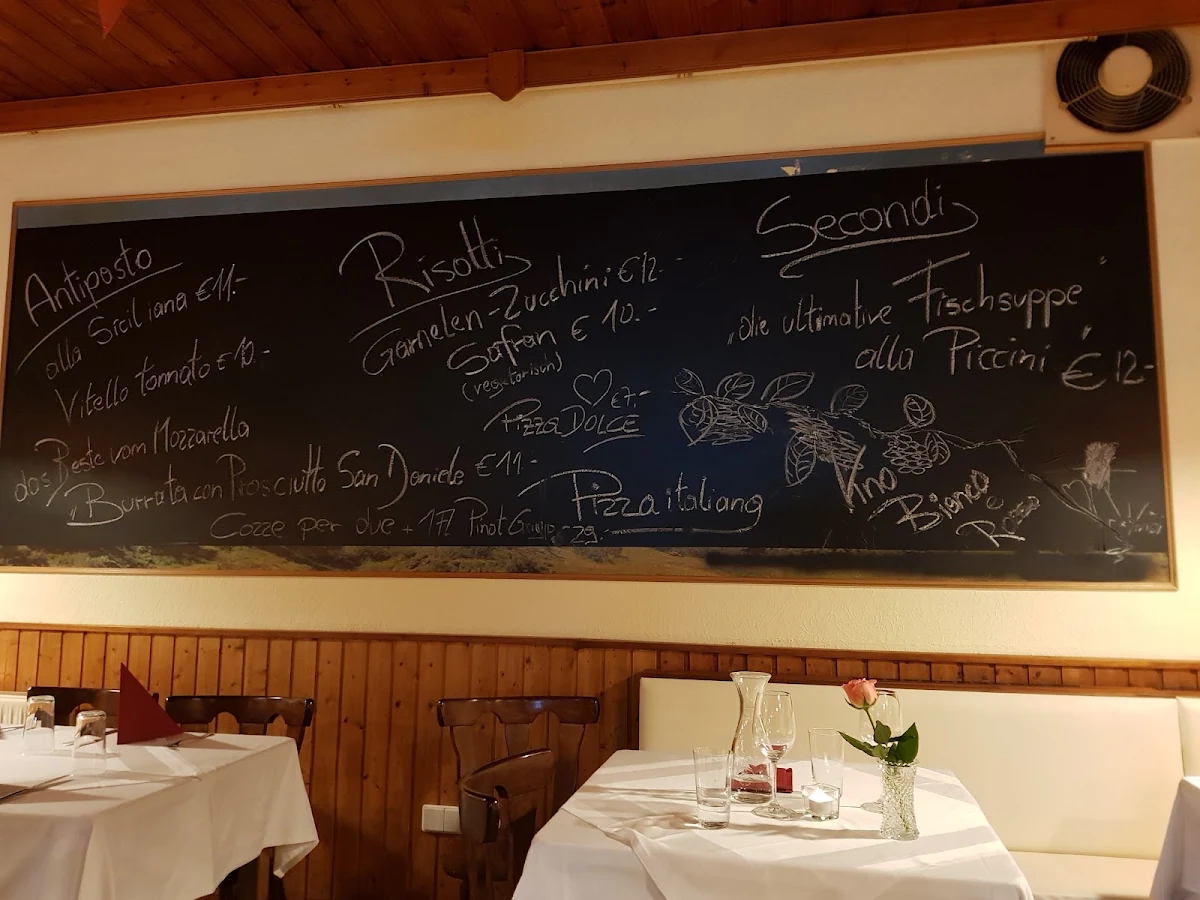 Antiposto
alla Siciliana €11.-
Vitello tonnato €10.-
das Beste vom Mozzarella
"Burrata con Prosciutto San Daniele €11.-
Cozze per due + 1/1 Pinot Grigio -29.-
Risotti
Garnelen-Zucchini €12.-
Safran € 10.-
(vegetarisch)
€7,-
Pizza DOLCE
Pizza italiana
Secondi
"die ultimative Fischsuppe"
alla Piccini € 12.-
Vino
Bianco
e
Rosso